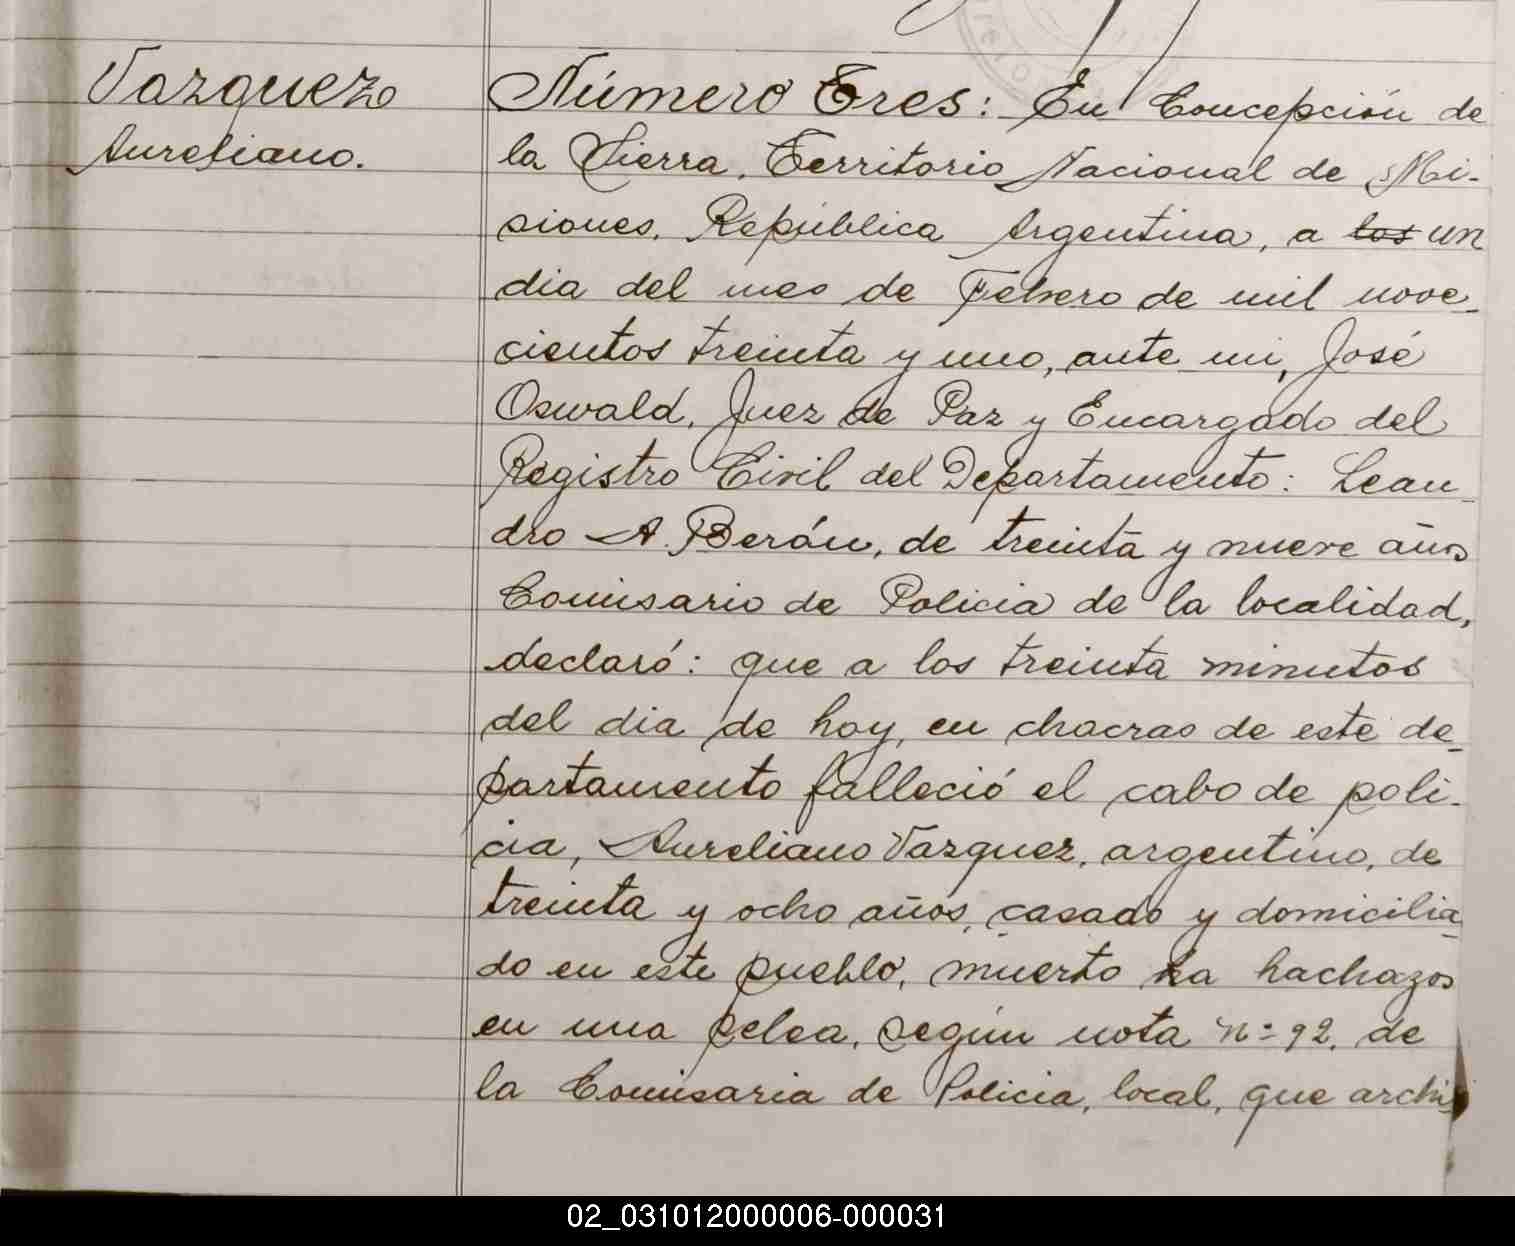 Vazquez
Aureliano.
Número Tres: En Concepción de
la Sierra, Territorio Nacional de Mi-
siones, República Argentina, a los un
dia del mes de Febrero de mil nove-
cientos treinta y uno, ante mi, José
Oswald, Juez de Paz y Encargado del
Registro Civil del Departamento: Lean-
dro A. Berón, de treinta y nueve años
Comisario de Policia de la localidad,
declaró: que a los treinta minutos
del dia de hoy, en chacras de este de-
partamento falleció el cabo de poli-
cia, Aureliano Vazquez, argentino, de
treinta y ocho años, casado y domicilia-
do en este pueblo, muerto a hachazos
en una pelea, según nota nº 92, de
la Comisaria de Policia, local, que archi-
02_031012000006-000031